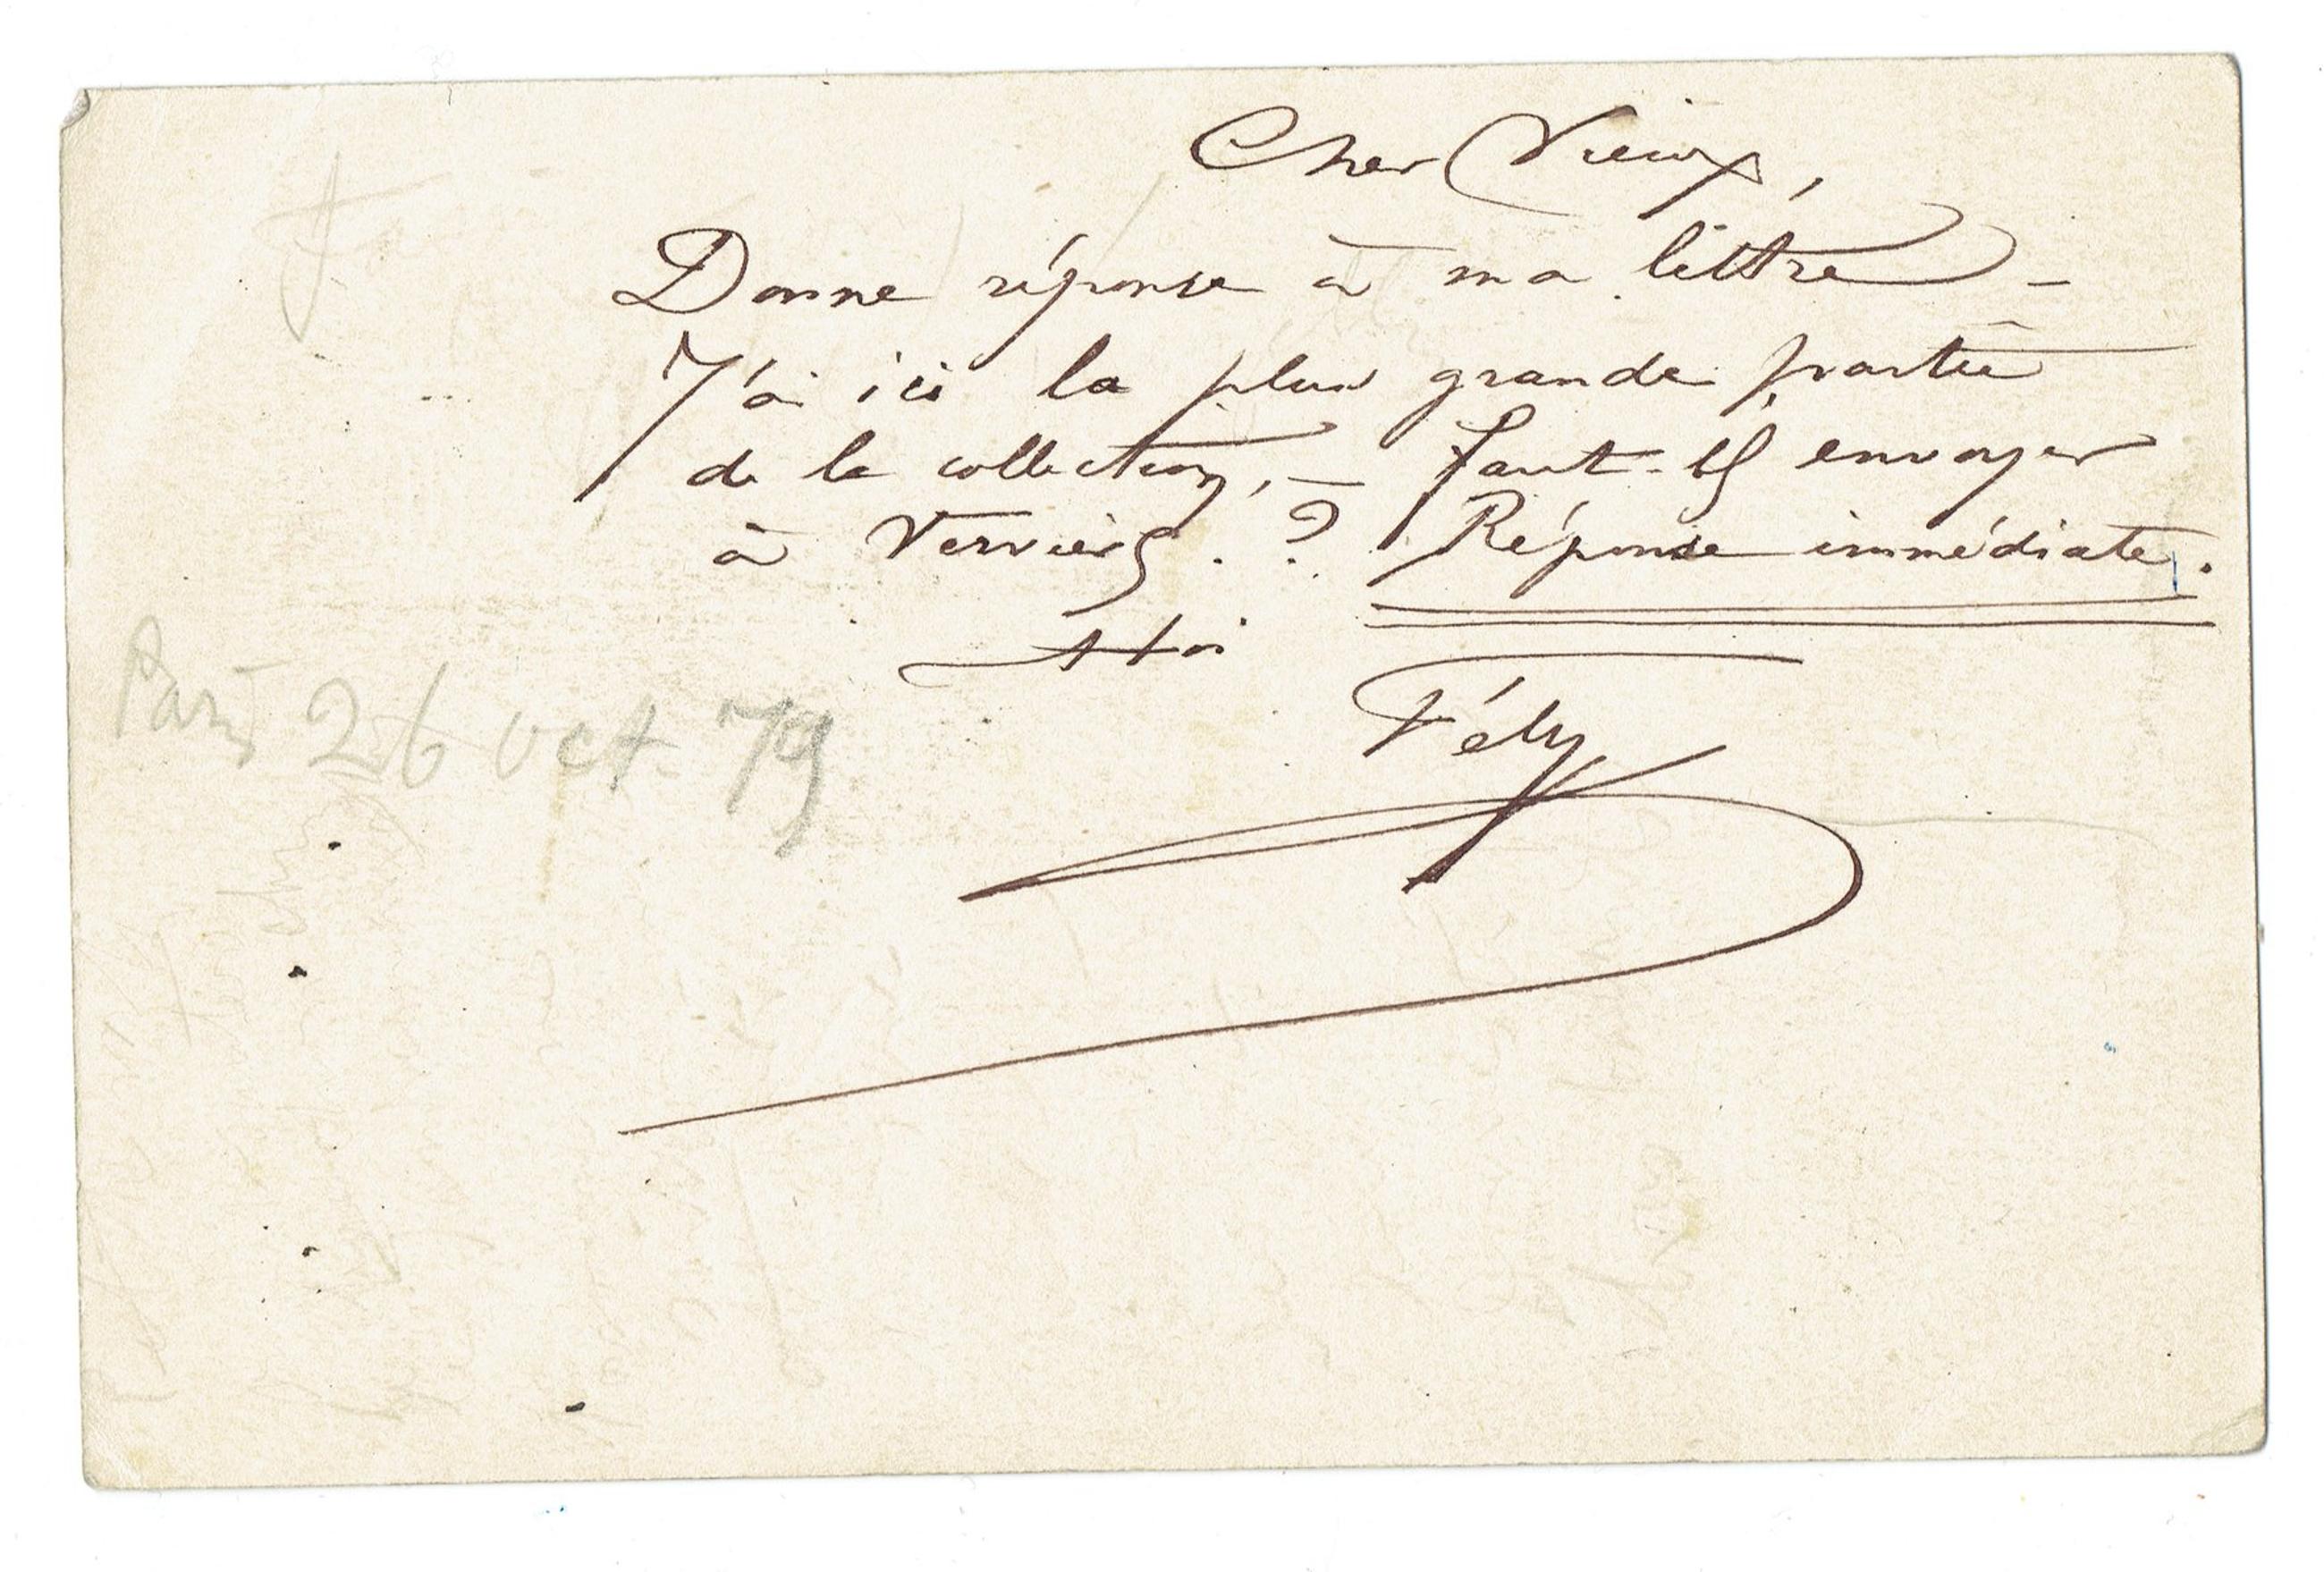 Cher Vieux,
Donne réponse à ma lettre –
J'ai ici la plus grande partie
de la collection, – Faut-il envoyer
à Verviers. ? Réponse immédiate.
à toi
Fély
Paris 26 oct. 79